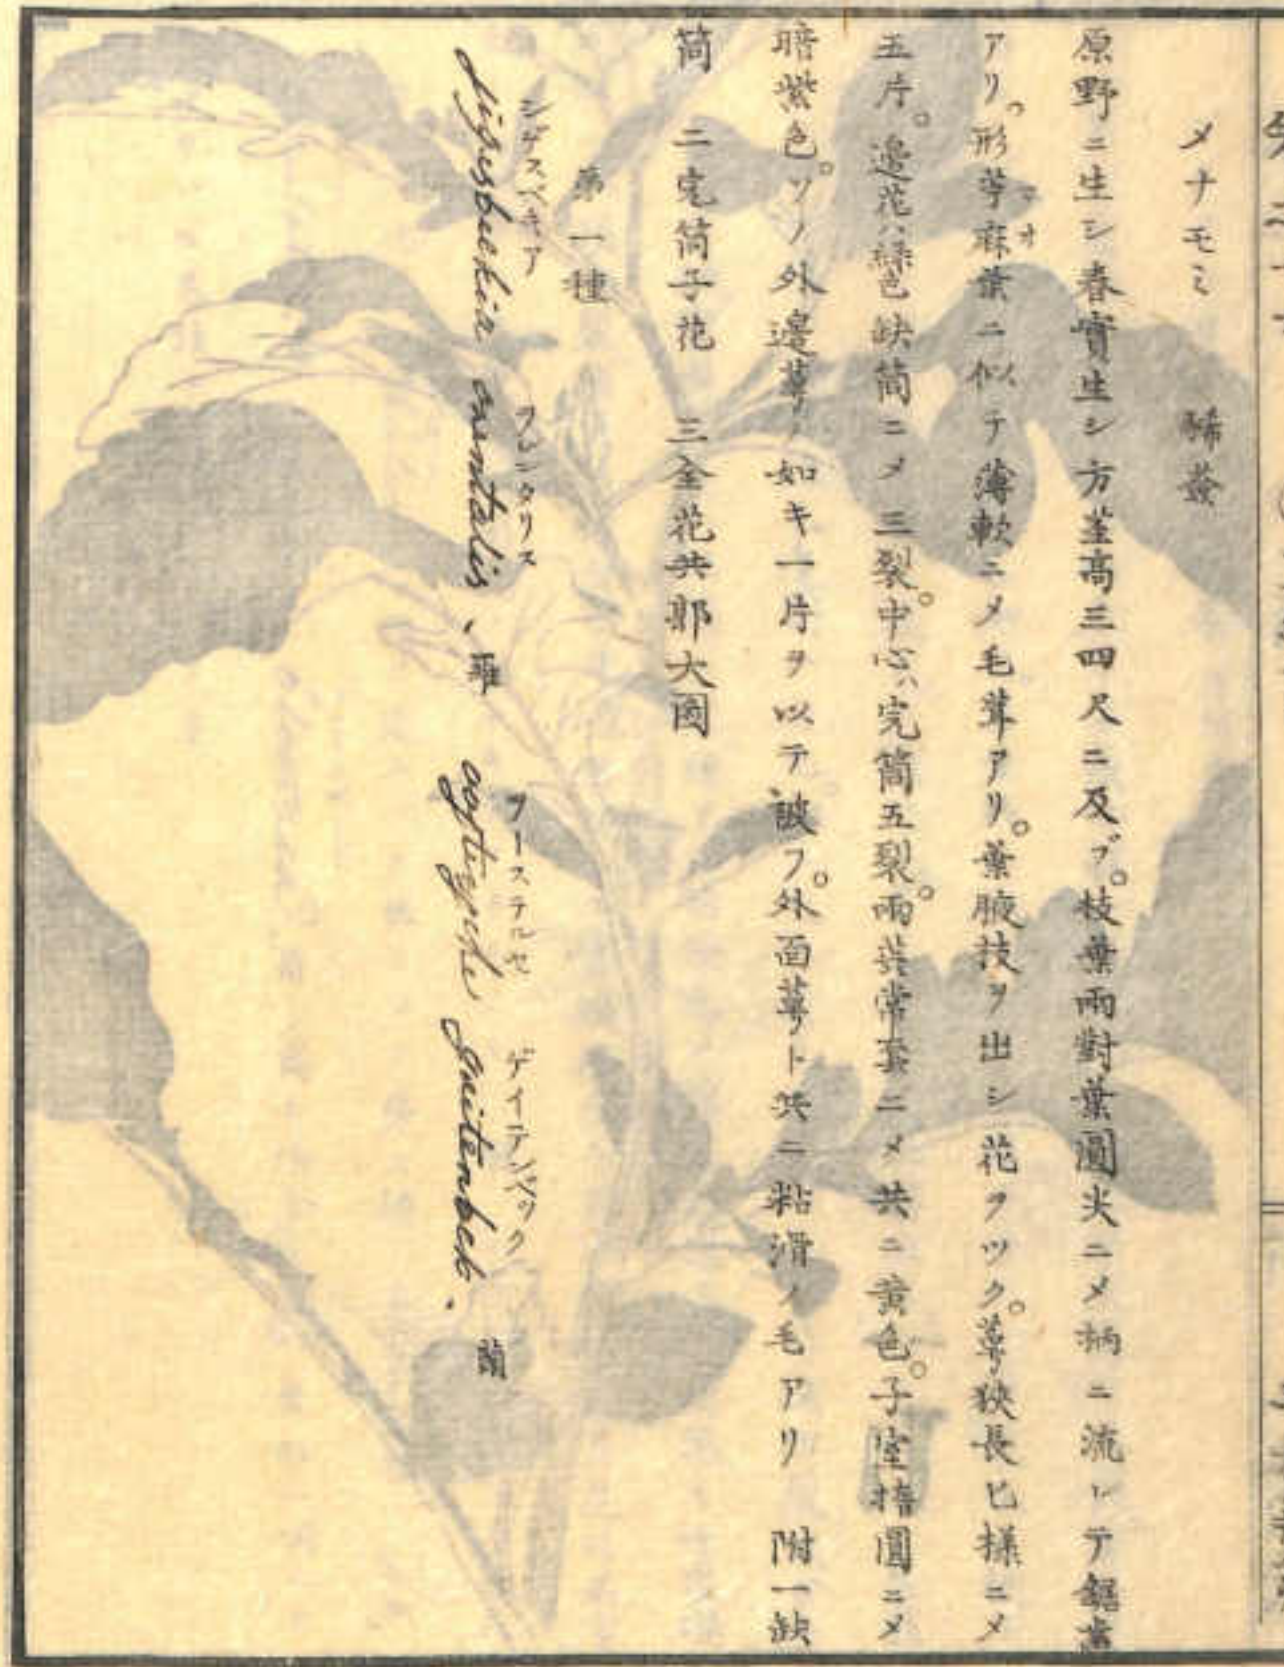 メナモミ　豨薟
原野ニ生シ春實生シ方莖高三四尺ニ及ブ。枝葉兩對葉圓尖ニメ柄ニ流レテ鋸齒
アリ。形苧麻葉ニ似テ薄軟ニメ毛茸アリ。葉腋技ヲ出シ花ヲツク。萼狹長匕樣ニメ
マオ
五片。邊花ハ緑色缺筒ニメ三裂。中心ハ完筒五裂。兩蕋常套ニメ共ニ黄色。子室橢圓ニメ
暗紫色。ソノ外邊萼ノ如キ一片ヲ以テ被フ。外面萼ト共ニ粘滑ノ毛アリ　附一缺
筒　二完筒子花　三全花共郭大圖
第一種
シゲスベキア　ヲレンタリス　ヲーステルセ　ゲイテンベック
Sigesbeckia orientalis、羅　oostersche geitenbek.　蘭